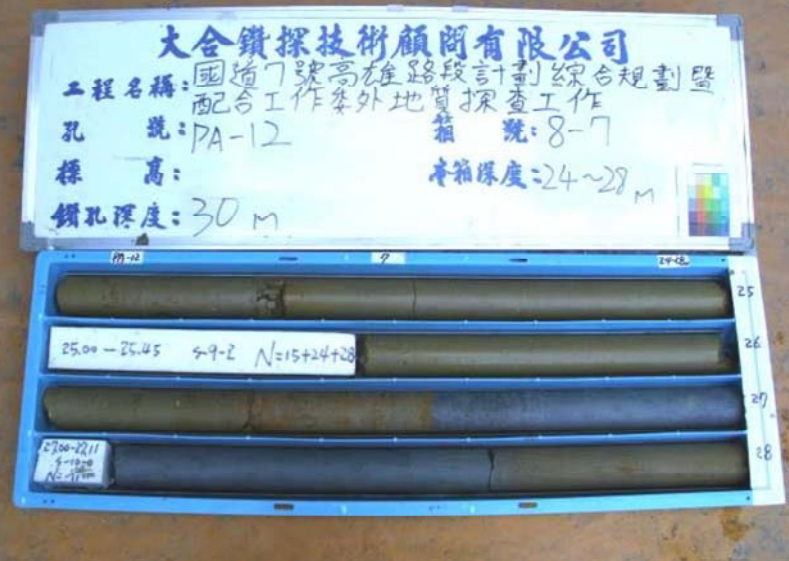 大合鑽探技術顧問有限公司
工程名稱:國道7號高雄路段計劃綜合規劃暨
配合工作委外地質探查工作
孔 號:PA-12 箱 號:8-7
標 高: 本箱深度:24~28 M
鑽孔深度:30 M
PA-12 7 24-28
25
25.00-25.45 S-9-2 N=15+24+28
26
27
27.00-27.11
28